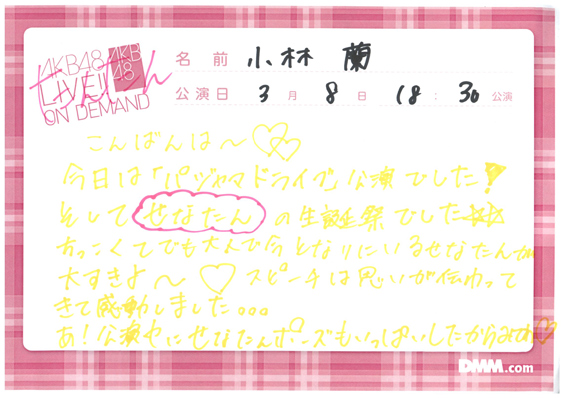 AKB48
LIVE!!
ON DEMAND
AKB
48
せなたん
名前 小林 蘭
公演日 3月8日 18:30公演
こんばんは～♡♡
今日は「パジャマドライブ」公演でした!
そして せなたん の生誕祭でした☆☆
ちっこくてでも大人で今となりにいるせなたんが
大すきよ～♡ スピーチは思いが伝わって
きて感動しました。。。
あ!公演中にせなたんポーズもいっぱいしたからみてね♡
DMM.com